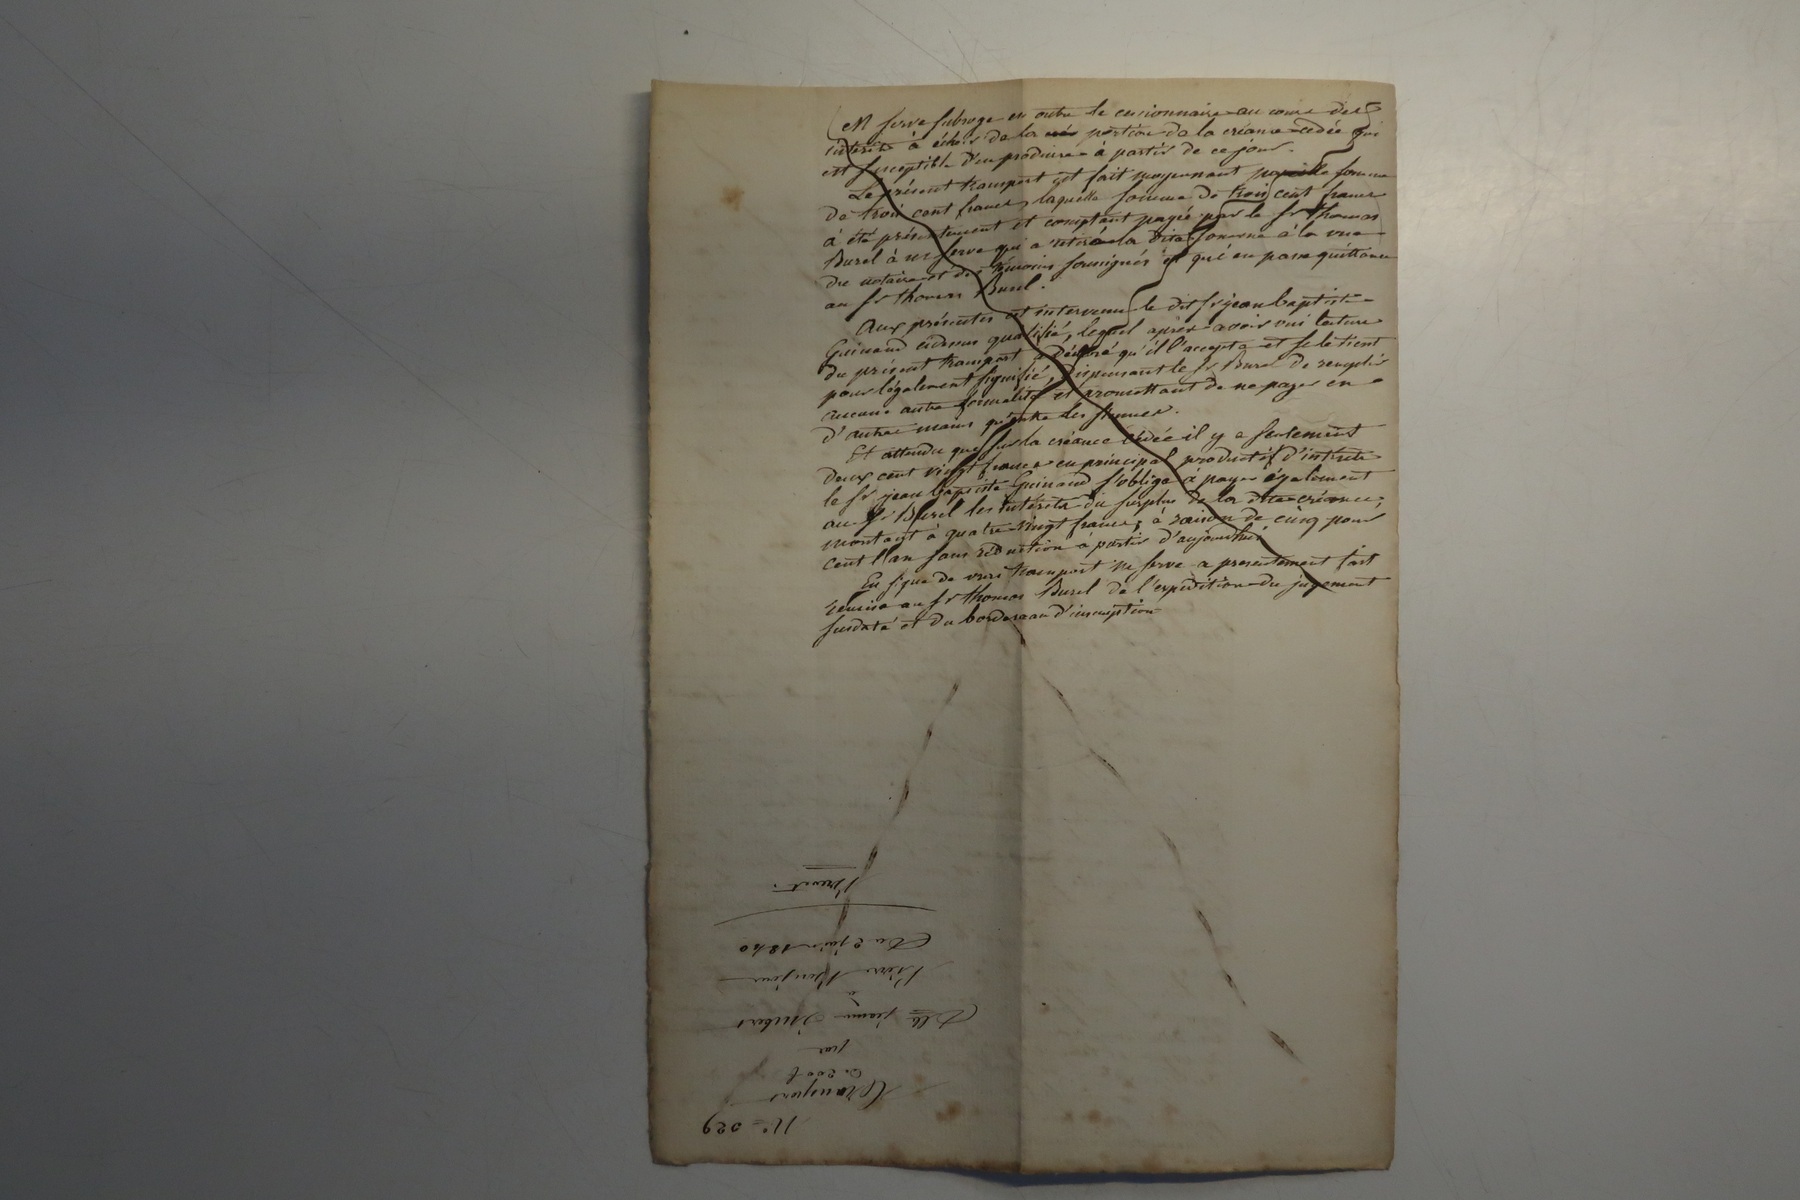 Me serve subroge en outre le cessionnaire au cours des
intérêts à échoir de la portion de la créance cédée qui
est susceptible d'en produire à partir de ce jour.
Le présent transport est fait moyennant pareille somme
de trois cent francs, laquelle somme de trois cent francs
à été présentement et comptant payée par le sr thomas
Burel à me serve qui a retiré la dite somme à la vue
du notaire et des témoins soussignés et qui en passe quittance
au sr thomas Burel.
Aux présentes est intervenu le dit sr jean baptiste
Guinand cidessus qualifié, lequel après avoir oui lecture
du présent transport a déclaré qu'il l'accepte et se le tient
pour légalement signifié, dispensant le sr Burel de remplir
aucune autre formalité et promettant de ne payer en
d'autres mains qu'entre les siennes.
Et attendu que sur la créance cédée il y a seulement
deux cent vingt francs en principal productif d'intérêts
le sr jean baptiste Guinand s'oblige à payer également
au sr Burel les intérêts du surplus de la dite créance,
montant à quatre vingt francs, à raison de cinq pour
cent l'an sans réduction à partir d'aujourdhui
En signe de vrai transport me serve a présentement fait
remise au sr thomas Burel de l'expédition du jugement
susdaté et du bordereau d'inscription
No 029
Transport
de 200 f
par
Dlle jeanne
à
Pierre
Du 2 juin 1840
Brevet.